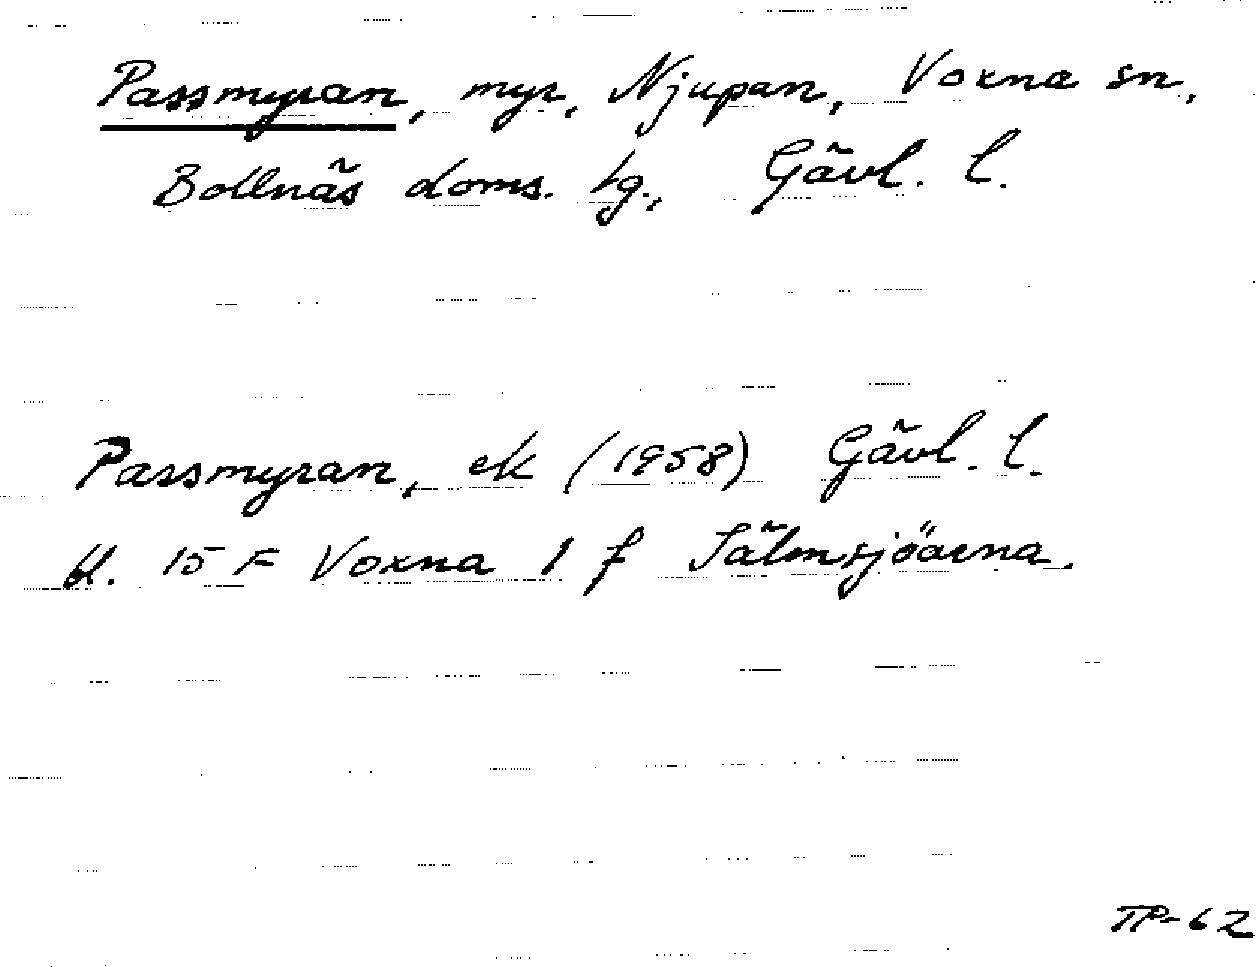 Passmyran, myr, Njupan, Voxna sn,
Bollnäs doms. tg., Gävl. l.
Passmyran, ek (1958) Gävl. l.
bl. 15 F Voxna 1 f Sälmsjöarna.
TP-62